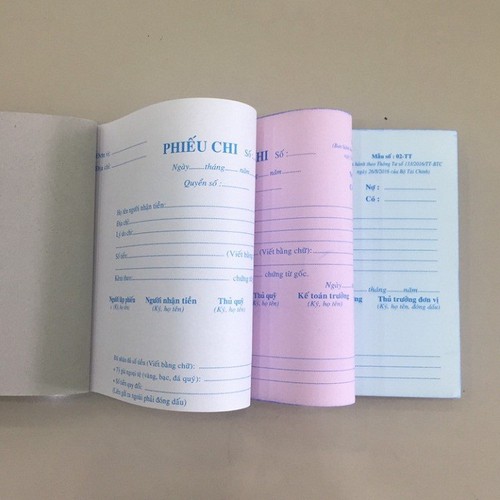 PHIẾU CHI Số
Ngày.......tháng.......năm
Quyển số :
Họ tên người nhận tiền:
Địa chỉ:
Lý do chi:
Số tiền: (Viết bằng chữ):
Kèm theo: chứng từ
Người lập phiếu
(Ký, họ tên)
Người nhận tiền
(Ký, họ tên)
Thủ quỹ
(Ký, họ tên)
Đã nhận đủ số tiền (Viết bằng chữ):
+ Tỉ giá ngoại tệ (vàng, bạc, đá quý):
+ Số tiền quy đổi:
(Liên gửi ra ngoài phải đóng dấu)
HI Số :
năm
chữ):
chứng từ gốc.
Ngày
Kế toán trưởng
(Ký, họ tên)
Mẫu số : 02-TT
hành theo Thông Tư số
của Bộ Tài Chính)
Nợ :
Có :
tháng năm
Thủ trưởng đơn vị
(Ký, họ tên, đóng dấu)